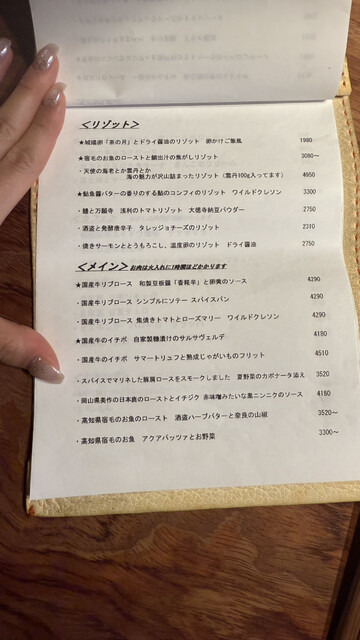 ＜リゾット＞
★城議卵「茶の月」とドライ醤油のリゾット　卵かけご飯風　1980
★宿毛のお魚のローストと鯛出汁の焦がしリゾット　3080～
・天使の海老とか雲丹とか
海の魅力が沢山詰まったリゾット（雲丹100g入ってます）　4950
★鮎魚醤バターの香りのする鮎のコンフィのリゾット　ワイルドクレソン　3300
・鱧と万願寺　浅利のトマトリゾット　大徳寺納豆パウダー　2750
・酒盗と発酵唐辛子　タレッジョチーズのリゾット　2310
・焼きサーモンととうもろこし、温度卵のリゾット　ドライ醤油　2750
＜メイン＞　お肉は火入れに1時間ほどかかります
★国産牛リブロース　和製豆板醤「香糀辛」と卵黄のソース　4290
・国産牛リブロース　シンプルにソテー　スパイスパン　4290
・国産牛リブロース　焦焼きトマトとローズマリー　ワイルドクレソン　4290
★国産牛のイチボ　自家製麹漬けのサルサヴェルデ　4180
・国産牛のイチボ　サマートリュフと熟成じゃがいものフリット　4510
・スパイスでマリネした豚肩ロースをスモークしました　夏野菜のカポナータ添え　3520
・岡山県美作の日本鹿のローストとイチジク　赤味噌みたいな黒ニンニクのソース　4180
・高知県宿毛のお魚のロースト　酒盗ハーブバターと奈良の山椒　3520～
・高知県宿毛のお魚　アクアパッツァとお野菜　3300～